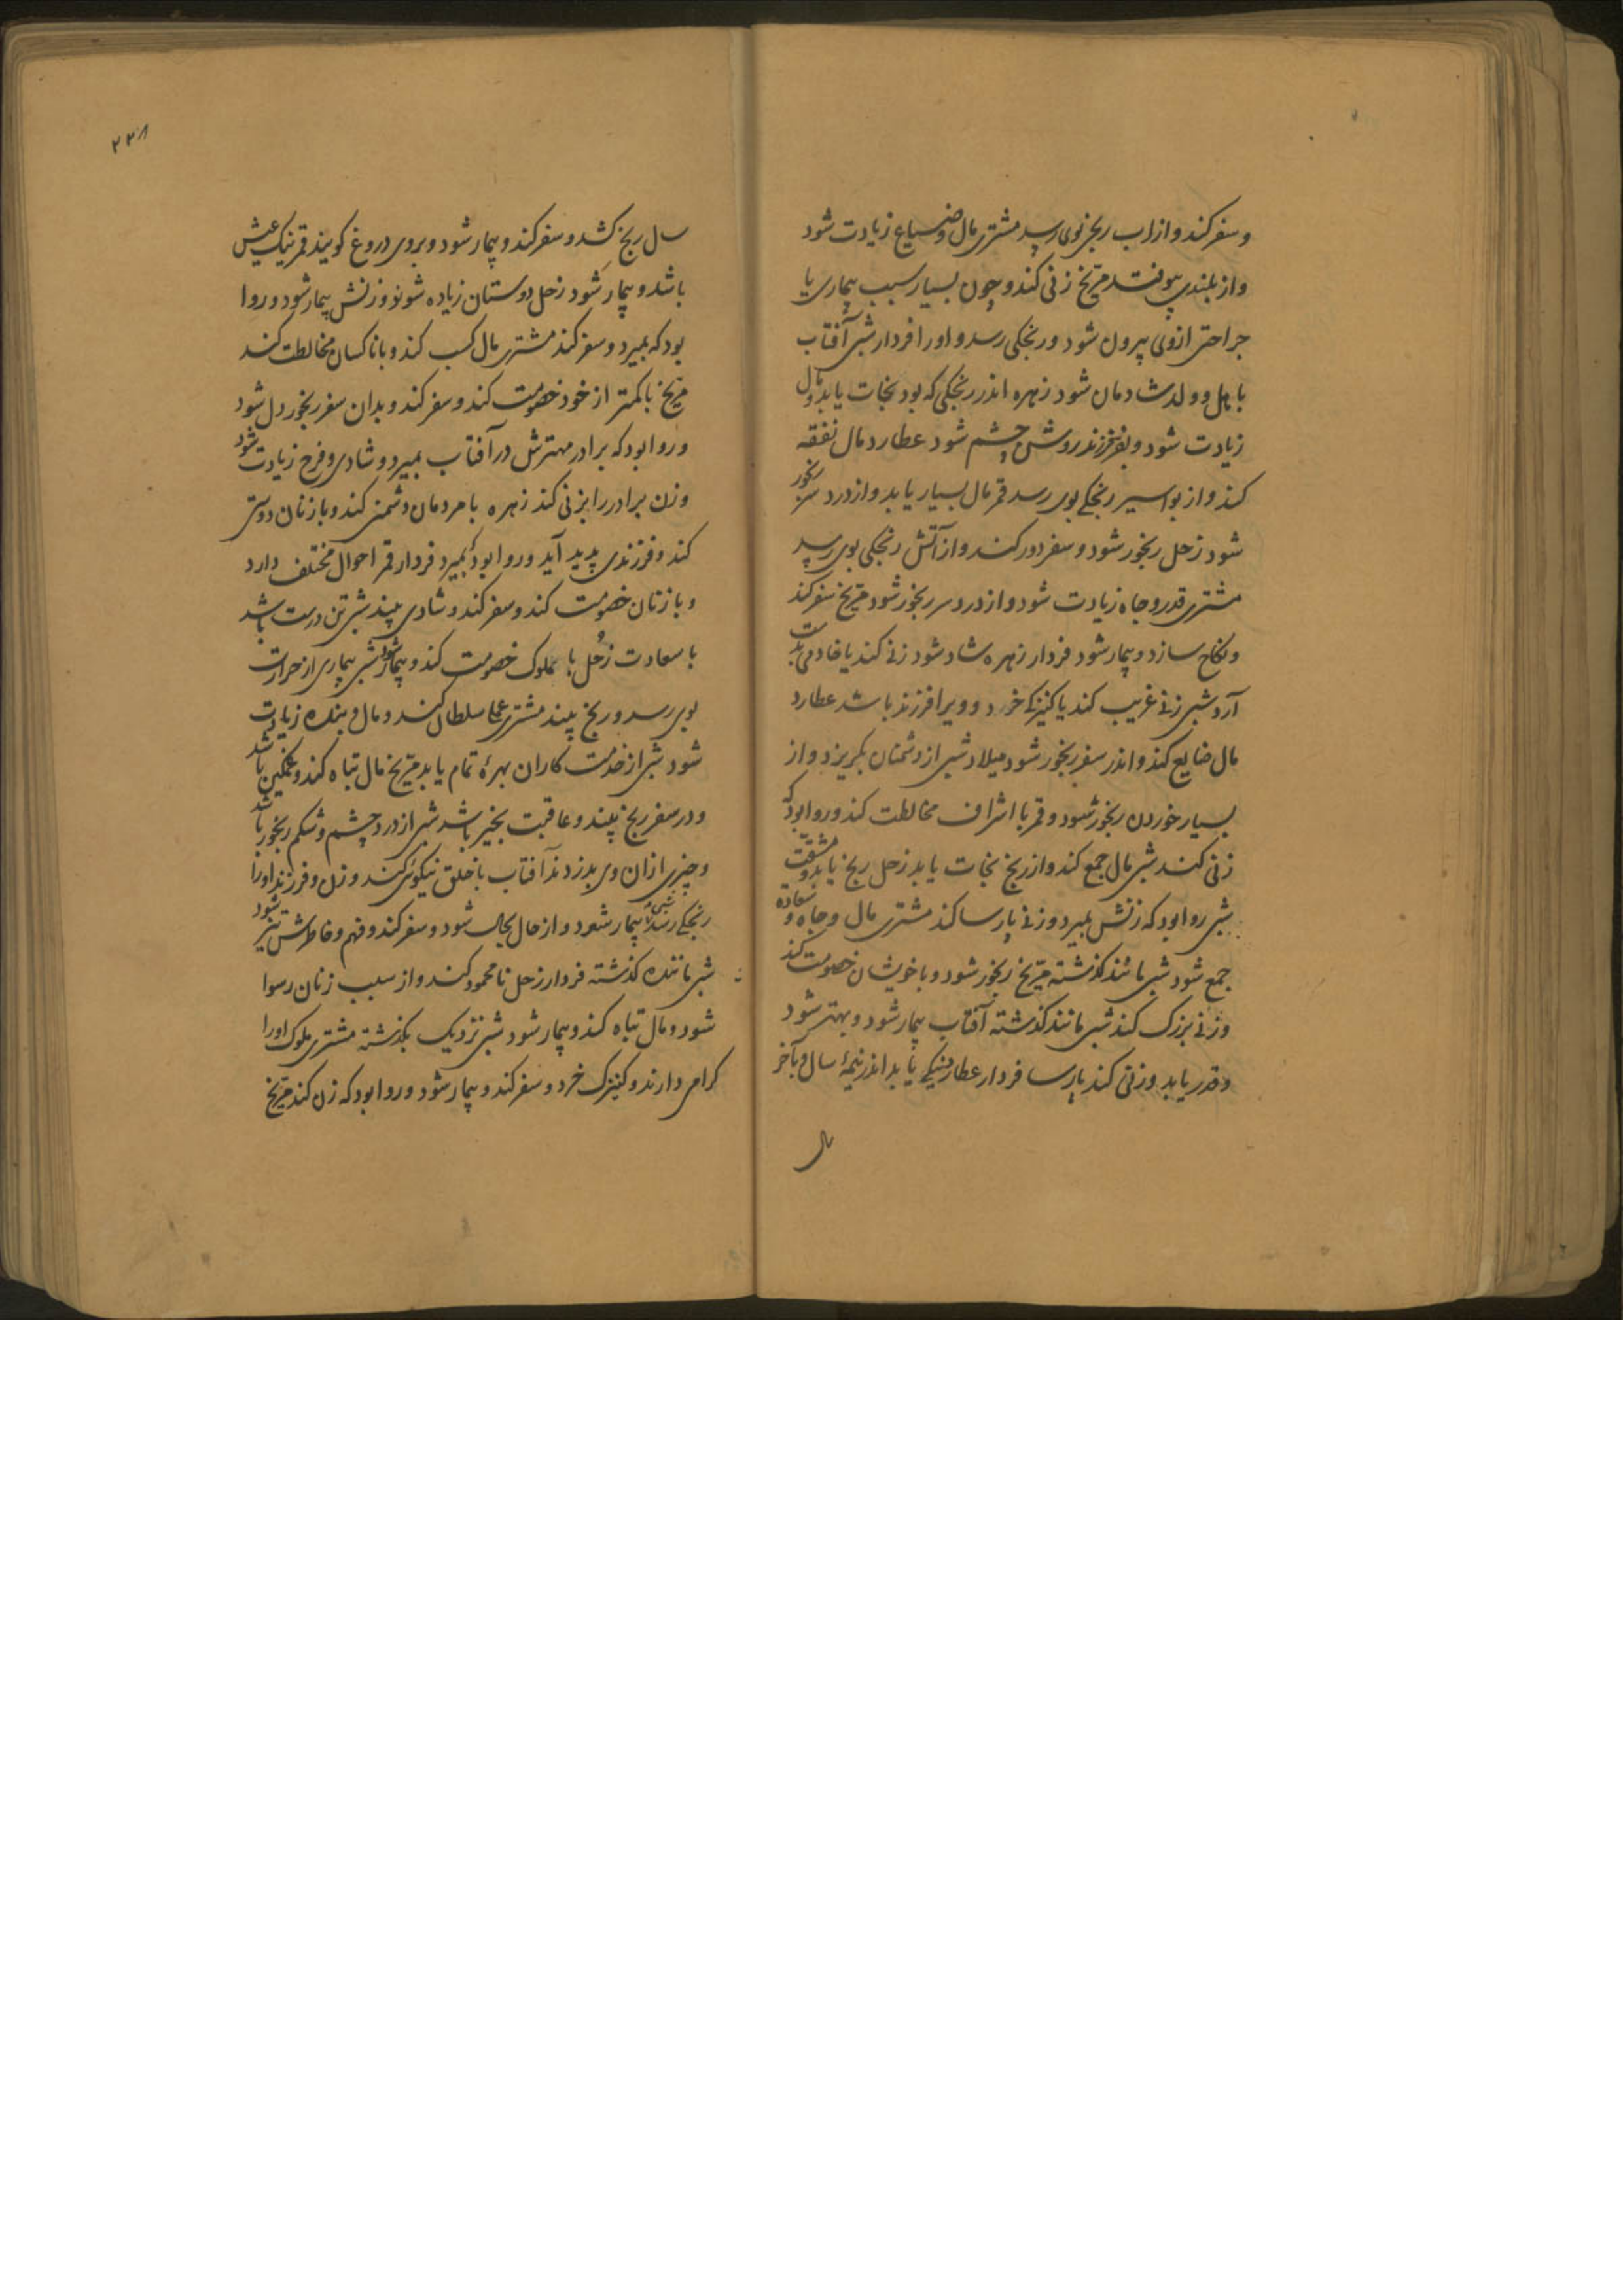 و سفر کند و از اب رنج بوی رسد مشتری مال و ضیاع زیادت شود
و از بلندی بیوفتد مریخ زنی کند و چون بسیار سبب بیماری یا
جراحتی از وی بیرون شود و رنجکی رسد و او را فردار شبی آفتاب
با اهل و ولد شادمان شود زهره اندر رنجکی که بود نجات یابد و مال
زیادت شود و بفرزند روشن چشم شود عطارد مال نفقه
کند و از بواسیر رنجکی بوی رسد قمر مال بسیار یابد و از درد سر رنجور
شود زحل رنجور شود و سفر دور کند و از آتش رنجکی بوی رسد
مشتری قدر و جاه زیادت شود و از درد سر رنجور شود مریخ سفر کند
و نکاح سازد و بیمار شود فردار زهره شاد شود زنی کند یا خادمی بدست
آرد شبی زنی غریب کند یا کنیزکی خرد و ویرا فرزند باشد عطارد
مال ضایع کند و اندر سفر رنجور شود میلاد شبی از دشمنان بگریزد و از
بسیار خوردن رنجور شود و قمر با اشراف مخالطت کند و روا بود که
زنی کند شبی مال جمع کند و از رنج نجات یابد زحل رنج یابد و مشقت
شبی روا بود که زنش بمیرد و زنی پارسا کند مشتری مال و جاه و سعادة
جمع شود شبی مانند گذشته مریخ رنجور شود و با خویشان خصومت کند
و زنی بزرک کند شبی مانند گذشته آفتاب بیمار شود و بهتر شود
و قدر یابد و زنی کند پارسا فردار عطارد نیکی یابد اندر نیمهٔ سال و بآخر
سال
۲۲۸
سال رنج کشد و سفر کند و بیمار شود و بروی دروغ کویند قمر نیک عیش
باشد و بیمار شود زحل دوستان زیاده شوند و زنش بیمار شود و روا
بود که بمیرد و سفر کند مشتری مال کسب کند و با ناکسان مخالطت کند
مریخ با کمتر از خود خصومت کند و سفر کند و بدان سفر رنجور دل شود
و روا بود که برادر مهترش در آفتاب بمیرد و شادی و فرح زیادت شود
و زن برادر را بزنی کند زهره با مردمان دشمنی کند و با زنان دوستی
کند و فرزندی پدید آید و روا بود که بمیرد فردار قمر احوال مختلف دارد
و با زنان خصومت کند و سفر کند و شادی بیند شبی تن درست باشد
با سعادت زحل با مملوک خصومت کند و بیمار شود شبی بیماری از حرارت
بوی رسد و رنج بیند مشتری عمل سلطان کند و مال و بنده زیادت
شود شبی از خدمت کاران بهرهٔ تمام یابد مریخ مال تباه کند و غمگین باشد
و در سفر رنج بیند و عاقبت بخیر باشد شبی از درد چشم و شکم رنجور باشد
و چیزی از ان وی بدزدند آفتاب با خلق نیکوئی کند و زن و فرزند او را
رنجکی رسد شبی بیمار شود و از حال بحال شود و سفر کند و فهم و خاطرش تیز شود
شبی ماننده کذشته فردار زحل نا محمود کند و از سبب زنان رسوا
شود و مال تباه کند و بیمار شود شبی نزدیک بکذشته مشتری ملوک او را
کرامی دارند و کنیزک خرد و سفر کند و بیمار شود و روا بود که زن کند مریخ